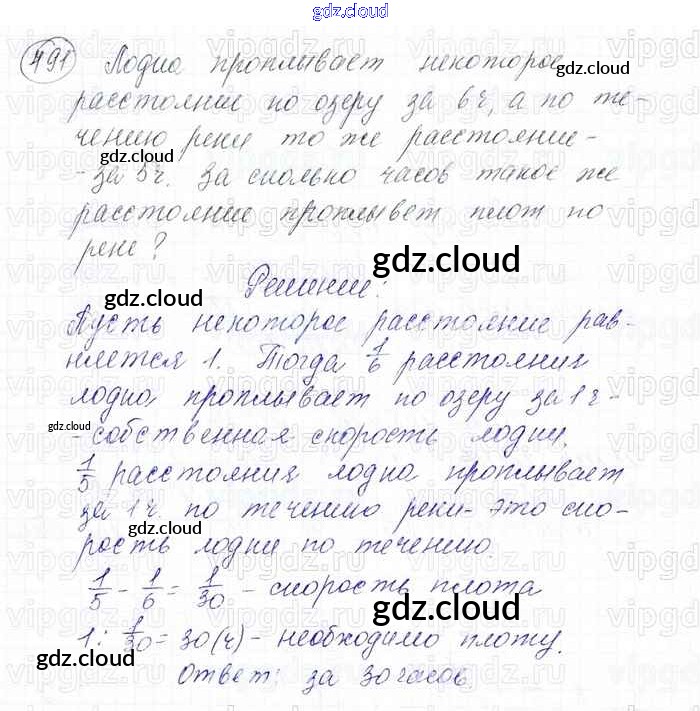 gdz.cloud
491 Лодка проплывает некоторое
gdz.cloud
расстояние по озеру за 6ч, а по те-
чению реки то же расстояние -
gdz.cloud
- за 5ч. За сколько часов такое же
gdz.cloud
расстояние проплывет плот по
реке?
gdz.cloud
Решение:
gdz.cloud
Пусть некоторое расстояние рав-
няется 1. Тогда 1/6 расстояния
лодка проплывает по озеру за 1ч -
gdz.cloud
- собственная скорость лодки.
gdz.cloud
1/5 расстояния лодка проплывает
за 1ч. по течению реки - это ско-
gdz.cloud
рость лодки по течению.
1/5 - 1/6 = 1/30 - скорость плота
gdz.cloud
1 : 1/30 = 30 (ч) - необходимо плоту.
gdz.cloud
Ответ: за 30 часов.
gdz.cloud